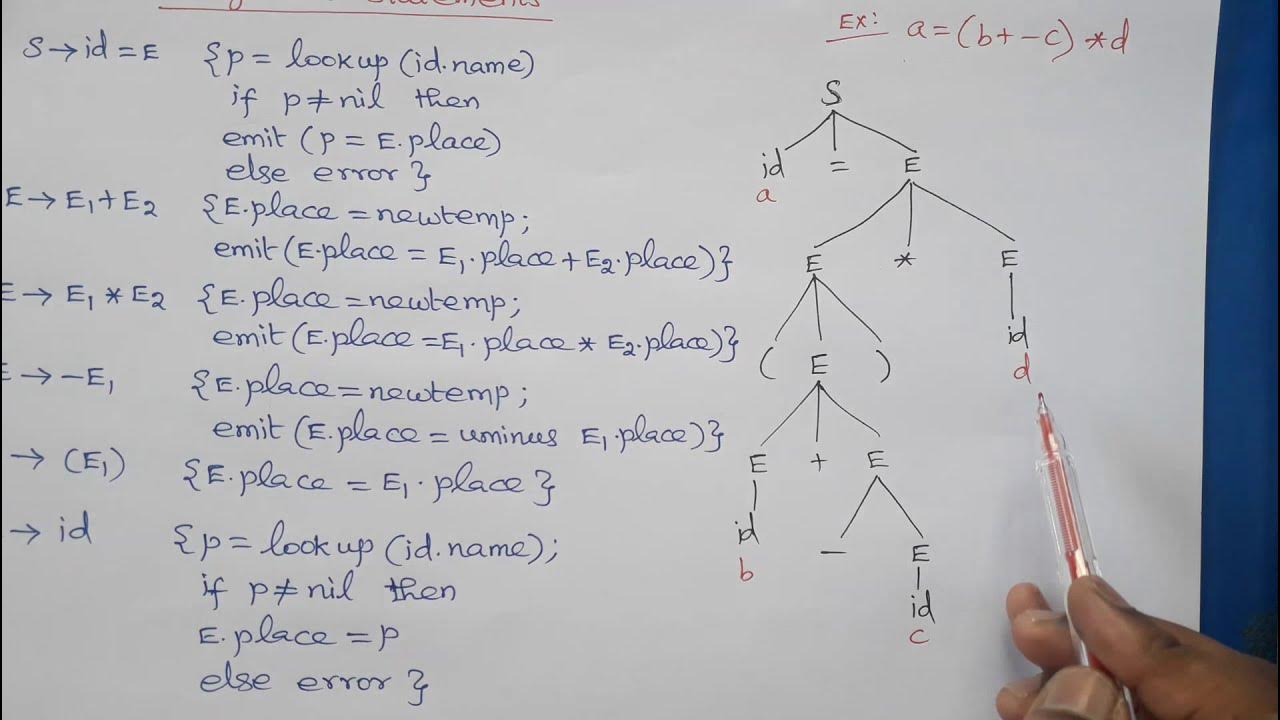 Statements
S → id = E {p = lookup (id.name)
if p ≠ nil then
emit (p = E.place)
else error}
E → E₁ + E₂ {E.place = newtemp;
emit (E.place = E₁.place + E₂.place)}
E → E₁ * E₂ {E.place = newtemp;
emit (E.place = E₁.place * E₂.place)}
E → -E₁ {E.place = newtemp;
emit (E.place = uminus E₁.place)}
→ (E₁) {E.place = E₁.place}
→ id {p = lookup (id.name);
if p ≠ nil then
E.place = p
else error}
Ex: a = (b + - c) * d
S
id = E
a
E * E
id
( E ) d
E + E
id - E
b id
c